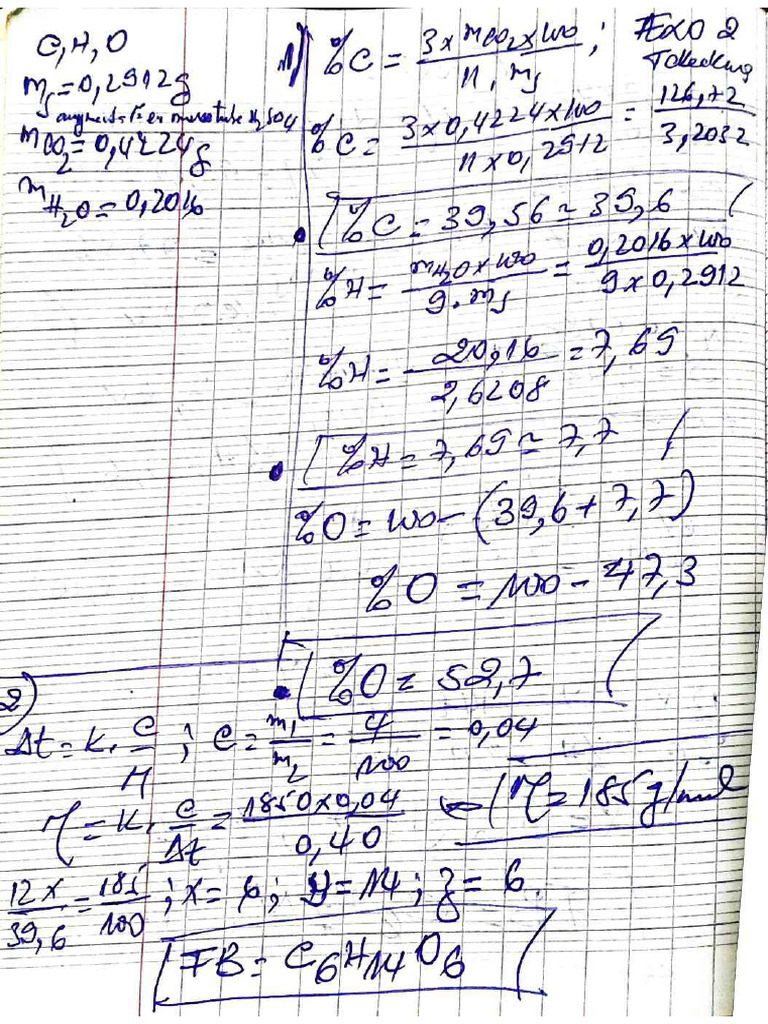 C, H, O
ms = 0,2912g
augment° en masse tube H2SO4
mCO2 = 0,4224g
mH2O = 0,2016
EXO 2
1) %C = 3 x mCO2 x 100 / 11 . ms ;
%C = 3 x 0,4224 x 100 / 11 x 0,2912 = 126,72 / 3,2032
%C = 39,56 ≃ 39,6
%H = mH2O x 100 / 9 . ms = 0,2016 x 100 / 9 x 0,2912
%H = 20,16 / 2,6208 = 7,69
%H = 7,69 ≃ 7,7
%O = 100 - (39,6 + 7,7)
%O = 100 - 47,3
%O = 52,7
2)
Δt = K . C / M ; C = m1 / m2 = 4 / 100 = 0,04
M = K . C / Δt = 1850 x 0,04 / 0,40 ⇐ M = 185 g/mol
12x / 39,6 = 185 / 100 ; x = 6 ; y = 14 ; z = 6.
FB = C6H14O6